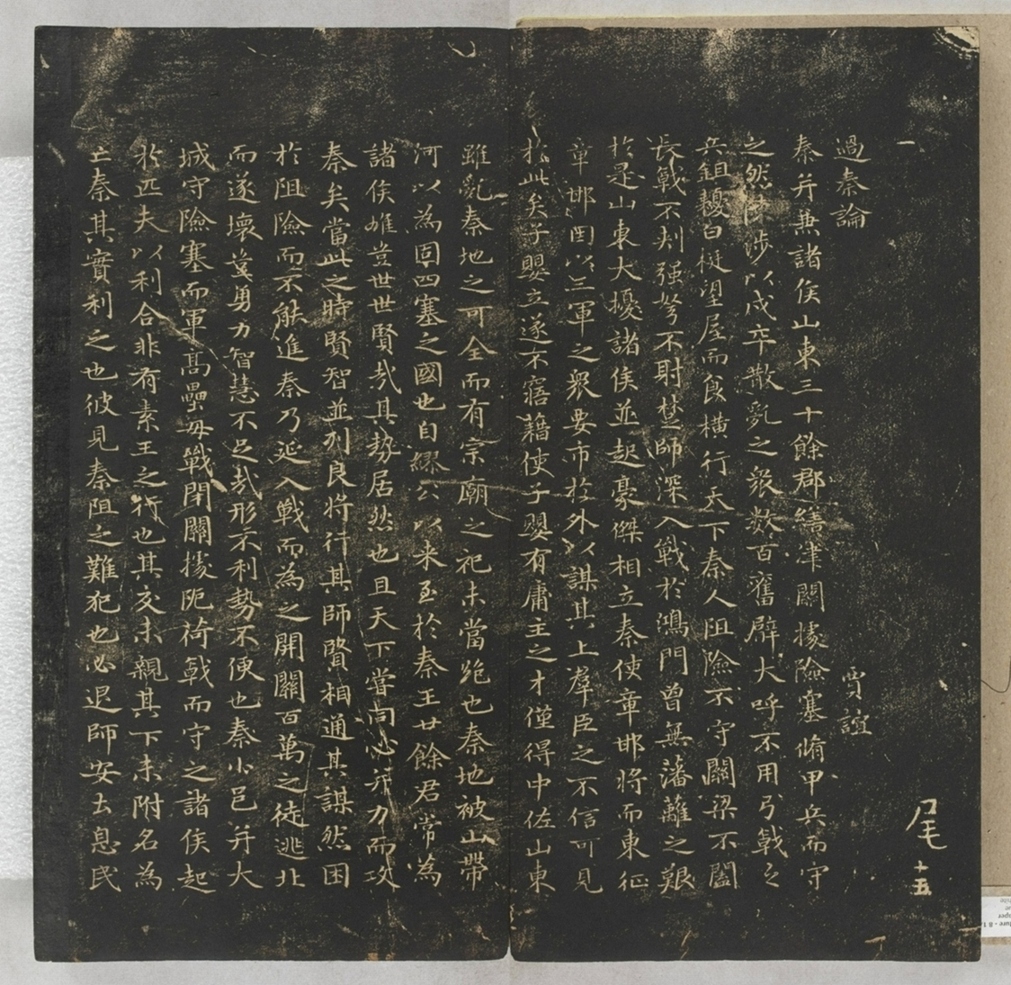 一
尾十五
過秦論 賈誼
秦并兼諸侯山東三十餘郡繕津關據險塞脩甲兵而守
之然陳涉以戍卒散亂之衆數百奮臂大呼不用弓戟之
兵鉏櫌白梃望屋而食橫行天下秦人阻險不守關梁不闔
長戟不刺强弩不射楚師深入戰於鴻門曾無藩蘺之艱
於是山東大擾諸侯並起豪傑相立秦使章邯將而東征
章邯因以三軍之衆要市於外以謀其上羣臣之不信可見
於此矣子嬰立遂不寤藉使子嬰有庸主之才僅得中佐山東
雖亂秦地之可全而有宗廟之祀未當絶也秦地被山帶
河以為固四塞之國也自繆公以来至於秦王廿餘君常為
諸侯雄豈世世賢哉其勢居然也且天下甞同心并力而攻
秦矣當此之時賢智並列良將行其師賢相通其謀然困
於阻險而不能進秦乃延入戰而為之開關百萬之徒逃北
而遂壞豈勇力智慧不足哉形不利勢不便也秦小邑并大
城守險塞而軍髙壘毋戰閉關據阨荷戟而守之諸侯起
於匹夫以利合非有素王之行也其交未親其下未附名為
亡秦其實利之也彼見秦阻之難犯也必退師安去息民